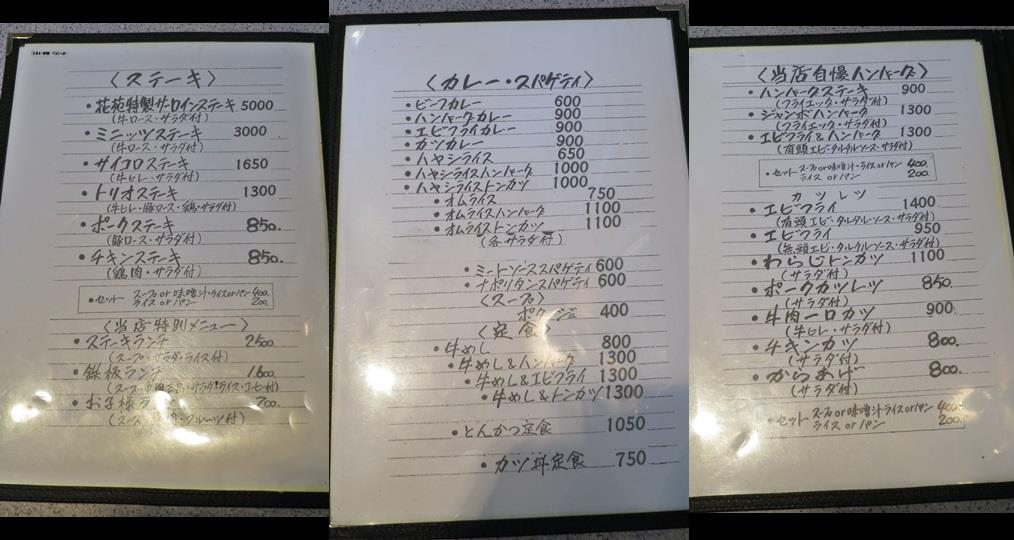 〈ステーキ〉
・花苑特製サーロインステーキ 5000
(牛ロース・サラダ付)
・ミニッツステーキ 3000
(牛ロース・サラダ付)
・サイコロステーキ 1650
(牛ヒレ・サラダ付)
・トリオステーキ 1300
(牛ヒレ・豚ロース・鶏・サラダ付)
・ポークステーキ 850.
(豚ロース・サラダ付)
・チキンステーキ 850.
(鶏肉・サラダ付)
・セット スープor味噌汁・ライスorパン 400.
ライス or パン 200.
〈当店特別メニュー〉
・ステーキランチ 2500
(スープ・サラダ・ライス付)
・鉄板ランチ 1.600
・サラダ・ライス・コーヒー付)
・お子様 700.
フルーツ付)
〈カレー・スパゲティ〉
・ビーフカレー 600
・ハンバーグカレー 900
・エビフライカレー 900
・カツカレー 900
・ハヤシライス 650
・ハヤシライスハンバーグ 1000
・ハヤシライストンカツ 1000
・オムライス 750
・オムライスハンバーグ 1100
・オムライストンカツ 1100
(各サラダ付)
・ミートソーススパゲティ 600
・ナポリタンスパゲティ 600
〈スープ〉
ポタージュ 400
〈定食〉
・牛めし 800
・牛めし&ハンバーグ 1300
・牛めし&エビフライ 1300
・牛めし&トンカツ 1300
・とんかつ定食 1050
・カツ丼定食 750
〈当店自慢ハンバーグ〉
・ハンバーグステーキ 900
(フライエッグ・サラダ付)
・ジャンボハンバーグ 1300
(フライエッグ・サラダ付)
・エビフライ&ハンバーグ 1300
(有頭エビ・タルタルソース・サラダ付)
・セット スープor味噌汁・ライスorパン 400.
ライス or パン 200.
カツレツ
・エビフライ 1400
(有頭エビ・タルタルソース・サラダ付)
・エビフライ 950
(無頭エビ・タルタルソース・サラダ付)
・わらじトンカツ 1100
(サラダ付)
・ポークカツレツ 850.
(サラダ付)
・牛肉一口カツ 900.
(牛ヒレ・サラダ付)
・チキンカツ 800.
(サラダ付)
・からあげ 800.
(サラダ付)
・セット スープor味噌汁ライスorパン 400.
ライス or パン 200.